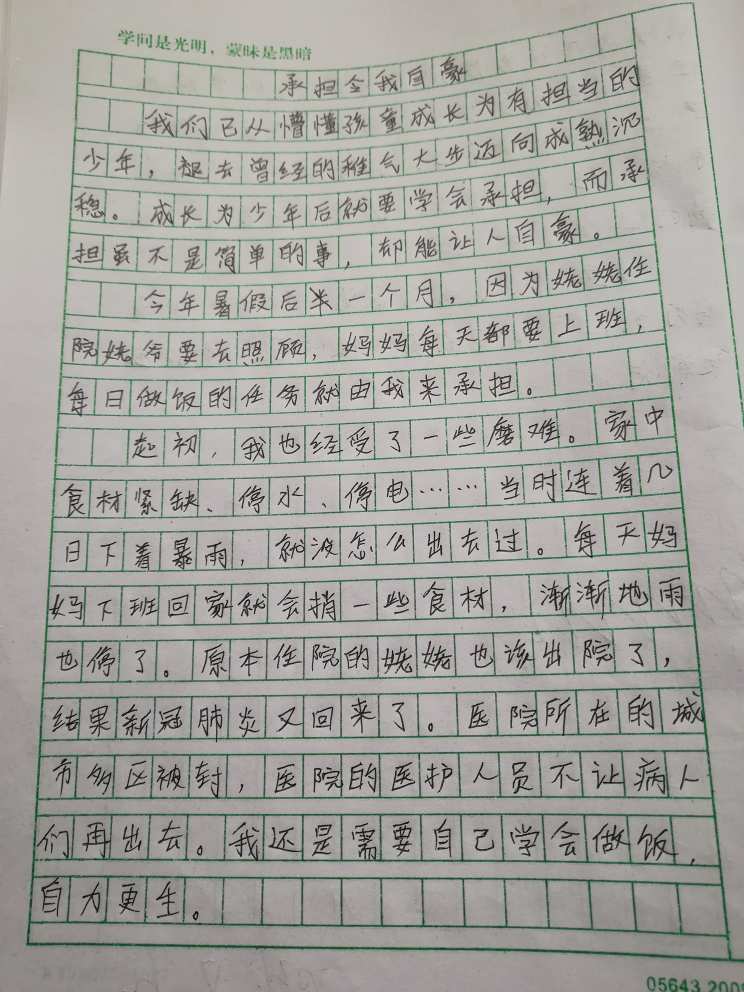 学问是光明，蒙昧是黑暗
承担令我自豪
我们已从懵懂孩童成长为有担当的
少年，褪去曾经的稚气大步迈向成熟沉
稳。成长为少年后就要学会承担，而承
担虽不是简单的事，却能让人自豪。
今年暑假后半一个月，因为姥姥住
院姥爷要去照顾，妈妈每天都要上班，
每日做饭的任务就由我来承担。
起初，我也经受了一些磨难。家中
食材紧缺、停水、停电……当时连着几
日下着暴雨，就没怎么出去过。每天妈
妈下班回家就会捎一些食材，渐渐地雨
也停了。原本住院的姥姥也该出院了，
结果新冠肺炎又回来了。医院所在的城
市多区被封，医院的医护人员不让病人
们再出去。我还是需要自己学会做饭，
自力更生。
05643.200